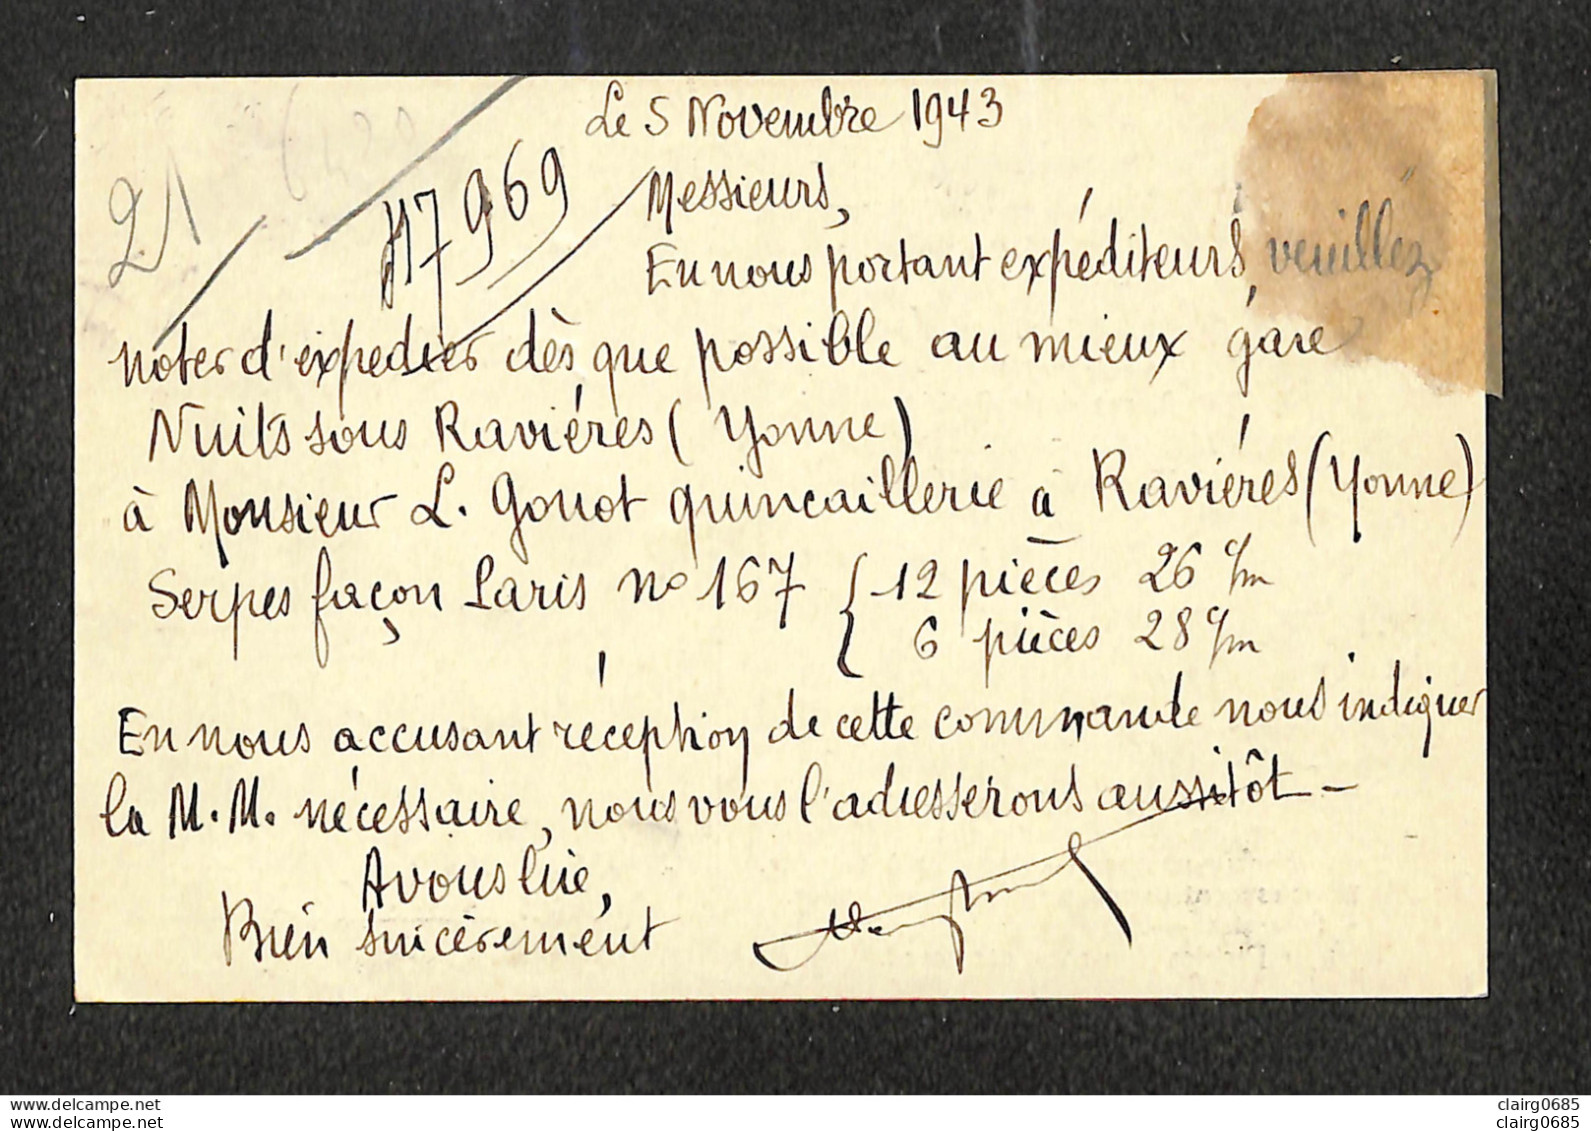 Le 5 Novembre 1943
21
H7969
Messieurs,
En nous portant expéditeurs, veuillez
noter d'expedier dès que possible au mieux gare
Nuits sous Raviéres (Yonne)
à Monsieur L. Gouot quincaillerie à Raviéres (Yonne)
Serpes façon Paris no 167 { 12 pièces 26 c/m
6 pièces 28 c/m
En nous accusant réception de cette commande nous indiquer
la M.M. nécessaire, nous vous l'adresserons aussitôt -
A vous lire,
Bien sincèrement
delcampe.net
delcampe.net
clairg0685
clairg0685